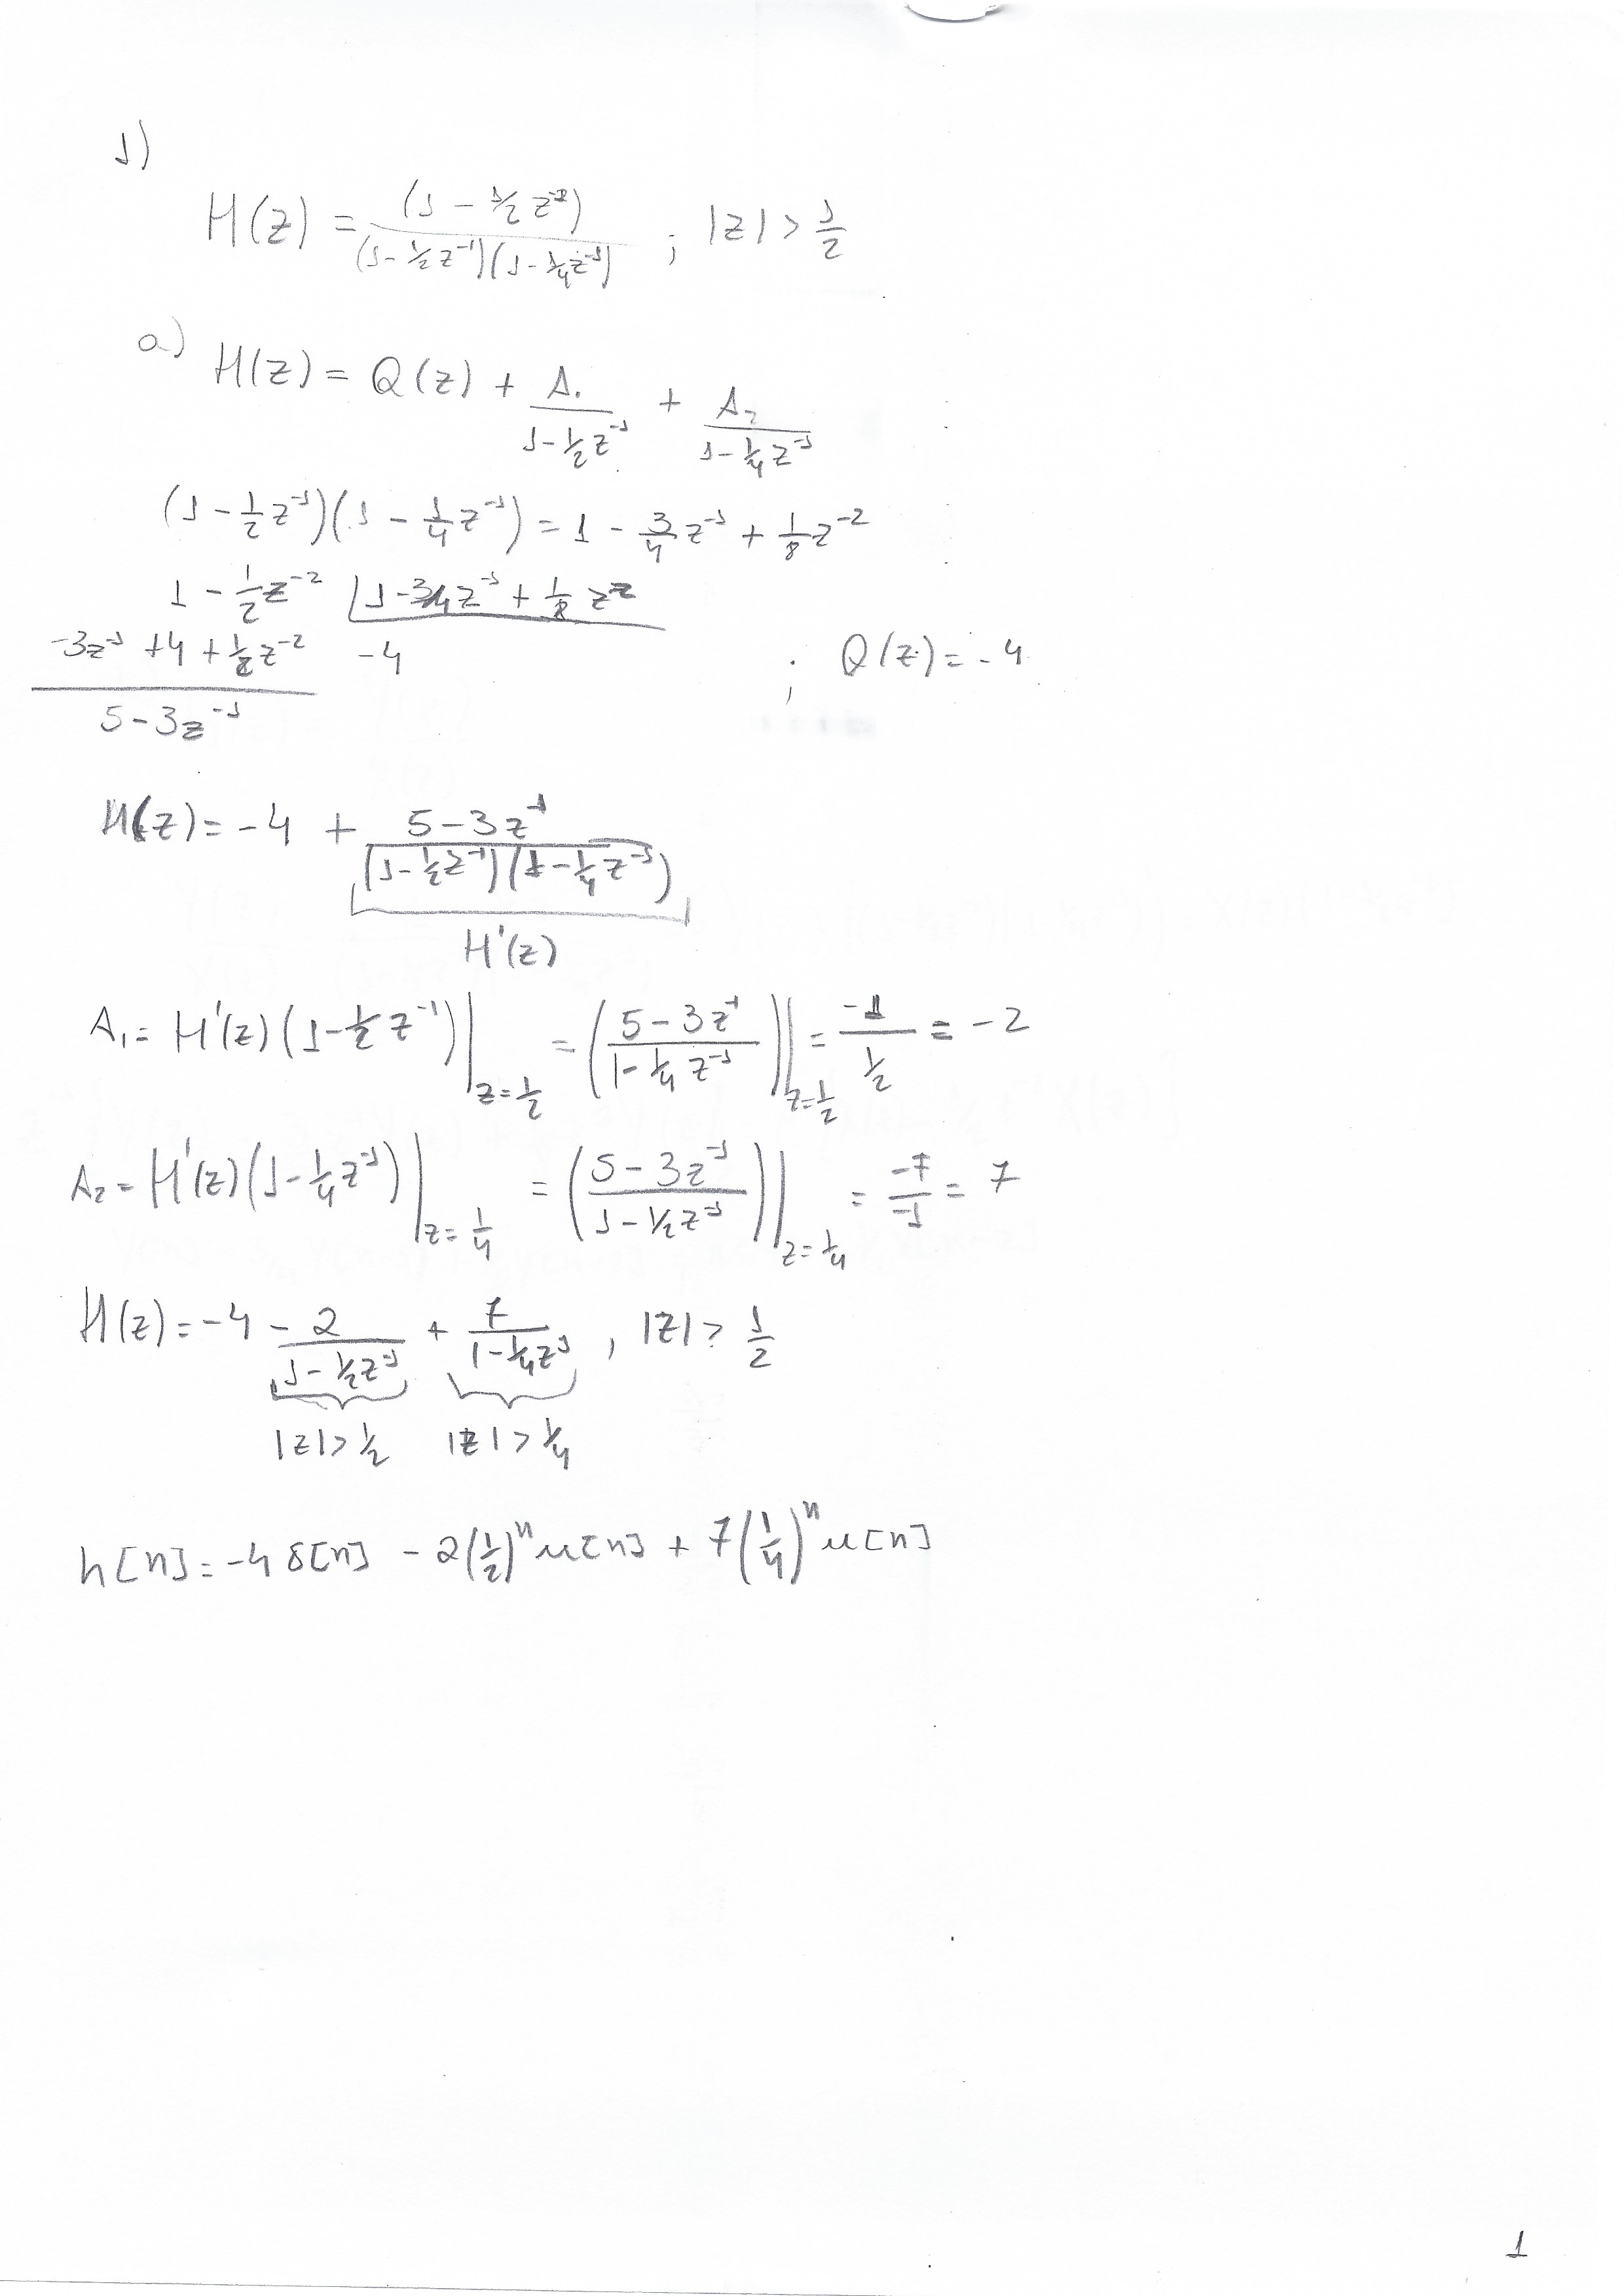 1)
H(z) = (1 - 1/2 z^-2) / ((1 - 1/2 z^-1)(1 - 1/4 z^-1)) ; |z| > 1/2
a) H(z) = Q(z) + A₁/(1 - 1/2 z^-1) + A₂/(1 - 1/4 z^-1)
(1 - 1/2 z^-1)(1 - 1/4 z^-1) = 1 - 3/4 z^-1 + 1/8 z^-2
1 - 1/2 z^-2 | 1 - 3/4 z^-1 + 1/8 z^-2
-3z^-1 + 4 + 1/2 z^-2 -4 ; Q(z) = -4
5 - 3z^-1
H(z) = -4 + (5 - 3z^-1) / ((1 - 1/2 z^-1)(1 - 1/4 z^-1))
H'(z)
A₁ = H'(z)(1 - 1/2 z^-1)|z=1/2 = ((5 - 3z^-1)/(1 - 1/4 z^-1))|z=1/2 = -1/(1/2) = -2
A₂ = H'(z)(1 - 1/4 z^-1)|z=1/4 = ((5 - 3z^-1)/(1 - 1/2 z^-1))|z=1/4 = -7/-1 = 7
H(z) = -4 - 2/(1 - 1/2 z^-1) + 7/(1 - 1/4 z^-1) , |z| > 1/2
|z| > 1/2 |z| > 1/4
h[n] = -4 δ[n] - 2(1/2)^n u[n] + 7(1/4)^n u[n]
1